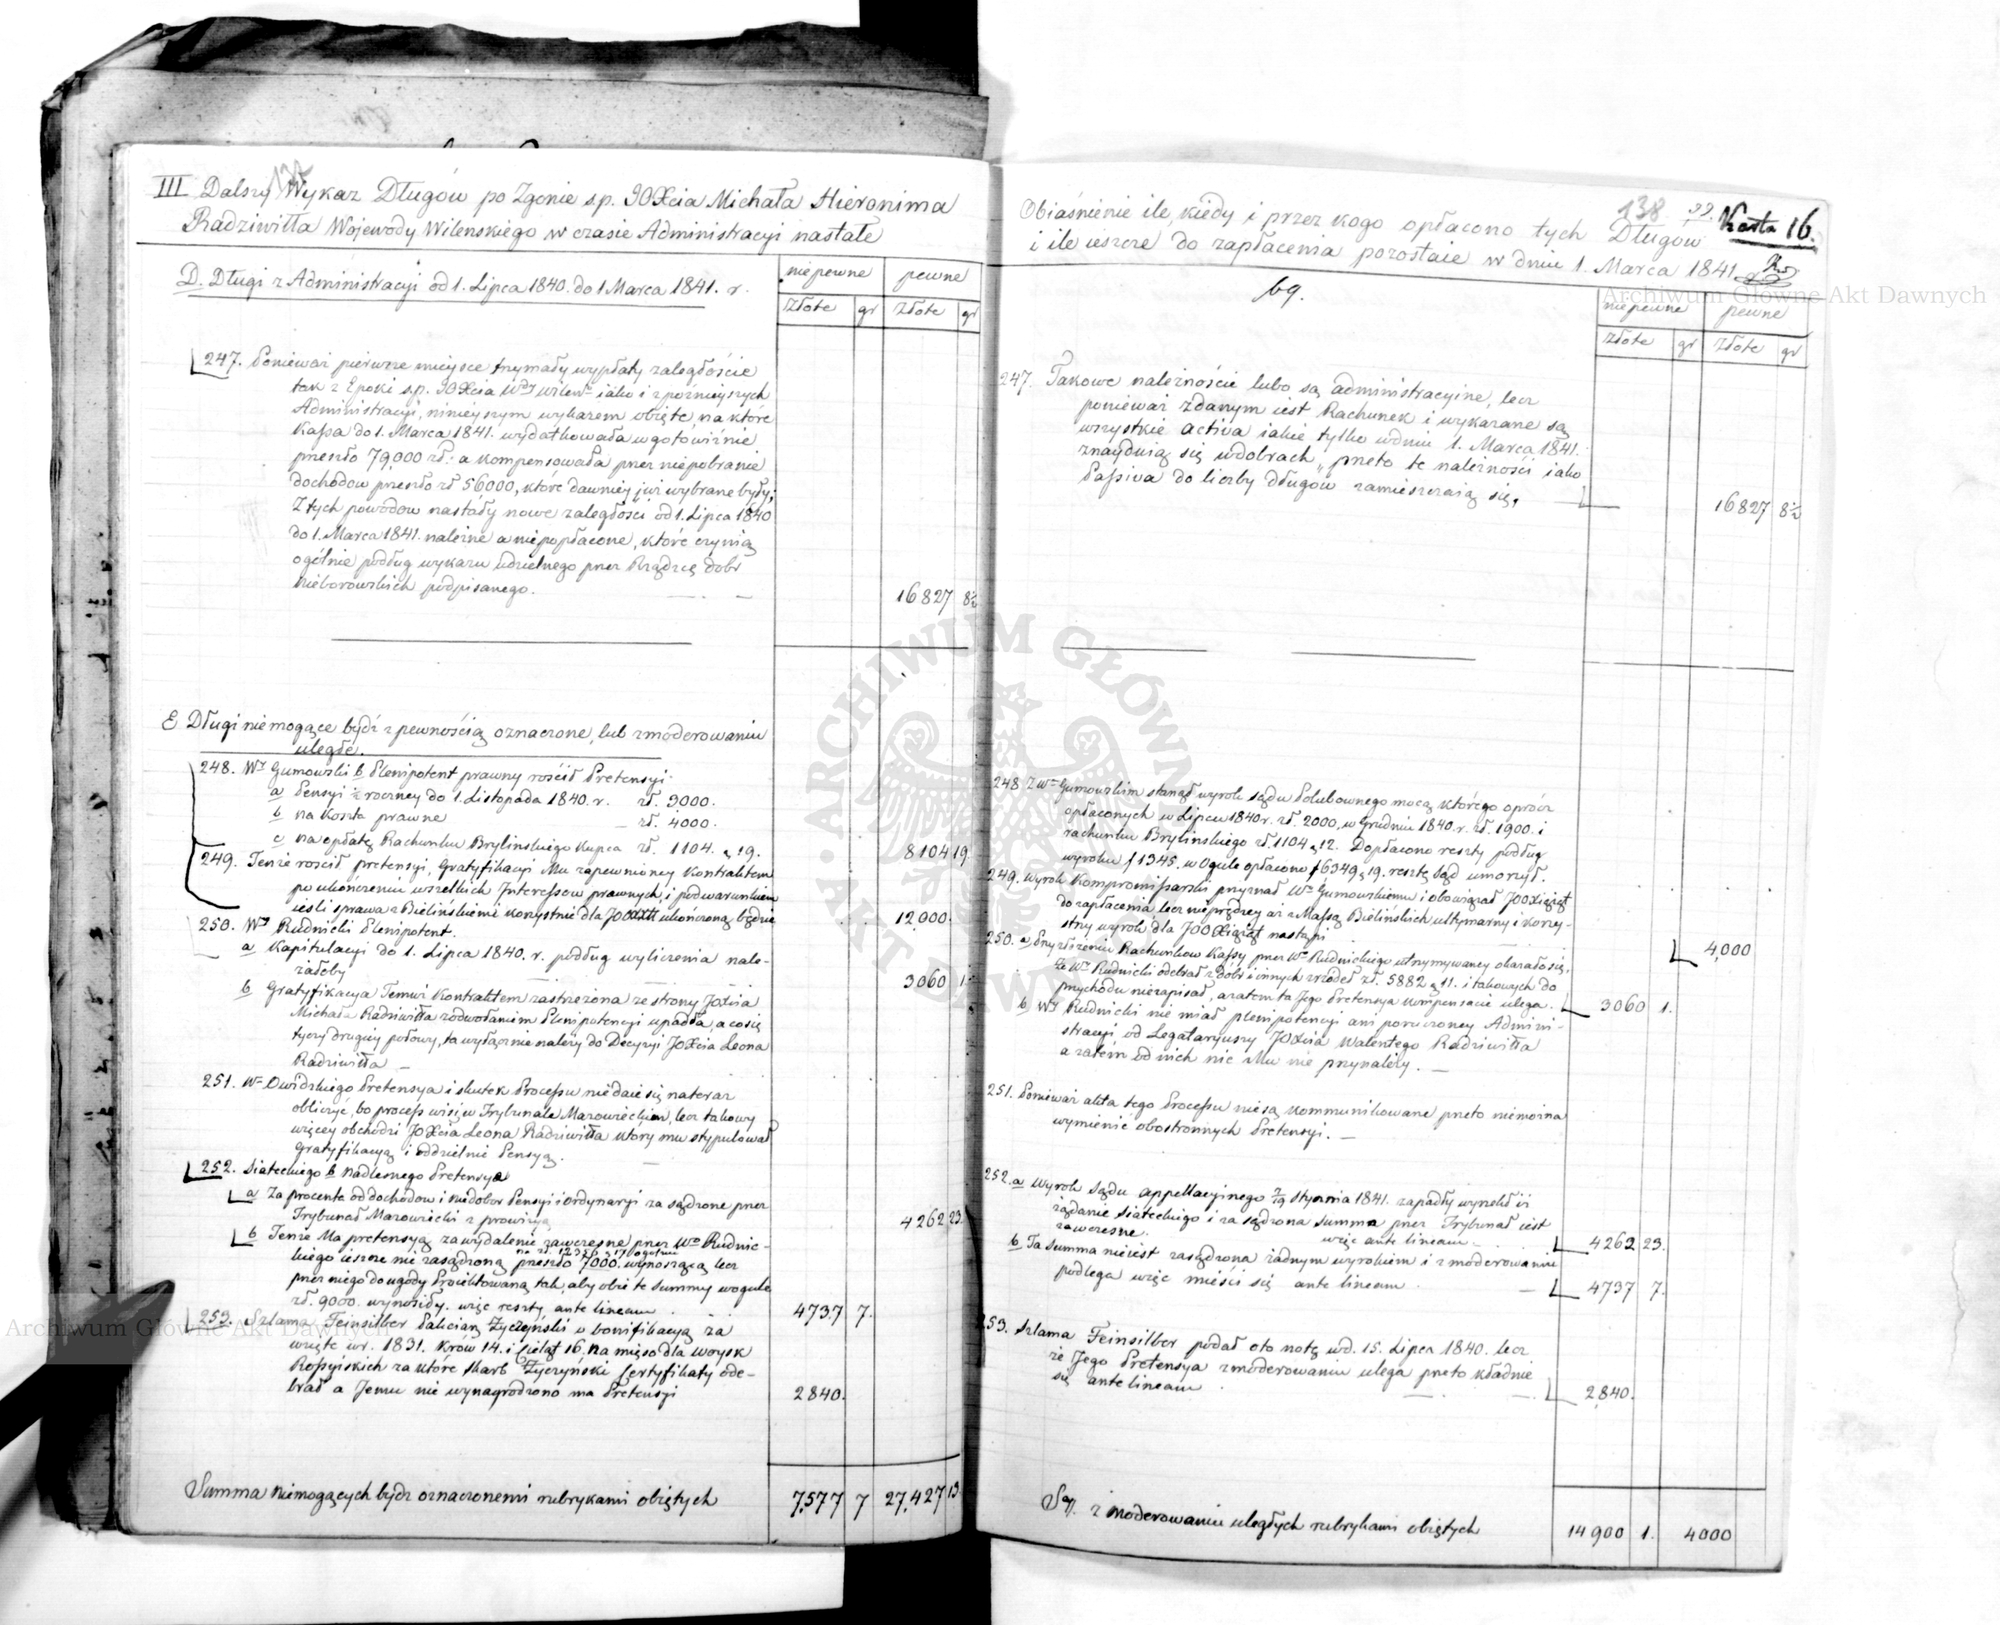 III Dalszy Wykaz Długów po Zgonie s.p. JOXcia Michała Hieronima
Radziwiłła Wojewody Wileńskiego w czasie Administracyi nastałe
D. Długi z Administracyi od 1. Lipca 1840. do 1 Marca 1841. r.
niepewne pewne
złote gr złote gr
247. Ponieważ pierwsze mieysce trzymały wypłaty zaległoście
tak z Epoki s.p. JOXcia Wdy Wileńo iako i z poźnieyszych
Administracyi, ninieyszym wykazem obięte, na które
Kassa do 1. Marca 1841. wydatkowała w gotowiźnie
przeszło 79,000 zł: a kompensowała przez niepobranie
dochodow przeszło zł 56000, ktore dawniey już wybrane były;
Z tych powodow nastały nowe zaległosci od 1. Lipca 1840
do 1. Marca 1841. należne a niepopłacone, które czynią
ogólnie podług wykazu udzielnego przez Rządzcę dobr
Nieborowskich podpisanego. 16827 8½
E Długi niemogące bydź z pewnością oznaczone, lub zmoderowaniu
uległe.
248. Wy Gumowski b Plenipotent prawny rościł Pretensyi
a Pensyi roczney do 1. Listopada 1840. r. zł. 3000.
b na koszta prawne zł. 4000.
c na opłatę Rachunku Brylinskiego Kupca zł. 1104. „ 19. 8104 19
249. Tenże rościł pretensyi, Gratyfikacyi Mu zapewnioney Kontraktem
po ukończeniu wszelkich Interessow prawnych, i pod warunkiem
iesli sprawa z Bielińskiemi korzystnie dla JOXXtt ukończoną będzie 12,000.
250. Wy Rudnicki Plenipotent.
a Kapitulacyi do 1. Lipca 1840. r. podług wyliczenia nale-
żałoby 3060 1.
b Gratyfikacya Temuż Kontraktem zastrzeżona ze strony JOXcia
Michała Radziwiłła z odwołaniem Plenipotencyi upadła, a co się
tyczy drugiey połowy, ta wyłącznie należy do Decyzyi JOXcia Leona
Radziwiłła —
251. Wo Owidzkiego Pretensya i skutek Processu nie daie się nateraz
obliczyć, bo process wisi w Trybunale Mazowieckim, lecz takowy
więcey obchodzi JOXcia Leona Radziwiłła ktory mu stypulował
Gratyfikacyą i oddzielnie Pensyą.
252. Siateckiego b Nadlesnego Pretensya
a Za procenta od dochodow i niedobor Pensyi i ordynaryi zasądzone przez
Trybunał Mazowiecki z prowizyą 4262 23
b Tenże Ma pretensyą za wydalenie zawczesne przez Wo Rudnic-
na zł. 12356 „ 17 ogolnie
kiego ieszcze nie zasądzoną przeszło 7000. wynoszącą lecz
przez niego do ugody Proiektowaną tak, aby obie te summy wogule
zł. 9000. wynosiły. więc reszty ante lineam 4737 7.
253. Szlama Feinsilber Pakciarz Życzyński o bonifikacyą za
wzięte w r. 1831. Krów 14. i Cieląt 16. na mięso dla woysk
Rossyiskich za które Skarb Życzyński Certyfikaty ode-
brał a Jemu nie wynagrodzono ma Pretensyi 2840.
Summa niemogących bydź oznaczonemi rubrykami obiętych 7,577 7 27,427 13
138 Karta 16.
Obiaśnienie ile, kiedy i przez kogo opłacono tych Długów
i ile ieszcze do zapłacenia pozostaie w dniu 1. Marca 1841.
niepewne pewne
złote gr złote gr
247. Takowe należnoście lubo są administracyine, lecz
ponieważ zdanym iest Rachunek i wykazane są
wszystkie activa iakie tylko w dniu 1. Marca 1841.
znayduią się w dobrach, przeto te należnosci iako
Passiva do liczby długów zamieszczaią się. 16827 8½
248 Z Wm Gumowskim stanął wyrok sądu Polubownego mocą którego oprócz
opłaconych w Lipcu 1840 r. zł. 2000, w Grudniu 1840. r. zł. 1900. i
rachunku Brylińskiego zł. 1104 „ 12. Dopłacono reszty podług
wyroku f 1345. w Ogule opłacono f 6349 „ 19. resztę Sąd umorzył.
249. Wyrok Kompromissarski przyznał Wu Gumowskiemu i obowiązał JOOXiążąt
do zapłacenia lecz nieprędzey aż z Massą Bielińskich ultymarny i korzy-
stny wyrok dla JOOXiążąt nastąpi 4,000
250. a Przy złożeniu Rachunkow Kassy przez Wo Rudnickiego utrzymywaney okazało się,
że Wy Rudnicki odebrał z dóbr i innych zrzodeł zł. 5882 „ 11. i takowych do
przychodu niezapisał, a zatem ta Jego Pretensya kompensacie ulega. 3060 1.
b Wy Rudnicki nie miał plenipotencyi ani poruczoney Admini-
stracyi, od Legataryuszy JOXcia Walentego Radziwiłła
a zatem od nich nic Mu nie przynależy. —
251. Ponieważ akta tego Processu nie są kommunikowane przeto niemożna
wymienić obostronnych Pretensyi. —
252. a Wyrok Sądu appellacyinego 7/19 stycznia 1841. zapadły wyrzekł iż
żądanie Siateckiego i zasądzona summa przez Trybunał iest
zawczesne. więc ante lineam 4262 23.
b Ta Summa nieiest zasądzona żadnym wyrokiem i zmoderowaniu
podlega więc mieści się ante lineam. 4737 7.
253. Szlama Feinsilber podał oto notę w d. 15. Lipca 1840. lecz
że Jego Pretensya zmoderowaniu ulega przeto kładnie
się ante lineam 2,840.
zmoderowaniu uległych rubrykami obiętych 14900 1. 4000
Archiwum Główne Akt Dawnych
Archiwum Główne Akt Dawnych
ARCHIWUM GŁÓWNE AKT DAWNYCH